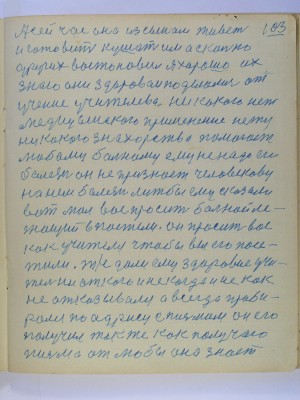 А сей час она из сынам живет 103
и готовит кушат им а сколко
других востоновил я харашо их
знаю они здаровам подемалис от
учение учителева никокого нет
медицинского применение нету
ни какого знахорства помогает
любому болному ему не надо его
болезн он не признает человекову
на нем болезн лижбы ему сказали
вот мол вас просит болной ле-
жащий в постели. он просит вас
как учителя чтобы вы его посе-
тили. Т/е дали ему здаровие учи-
тел ни от кого и некогда и не как
не отказывалы а всегда проби-
рался по адрису с писмам он его
получил так же как получаю
писма от любы она знает